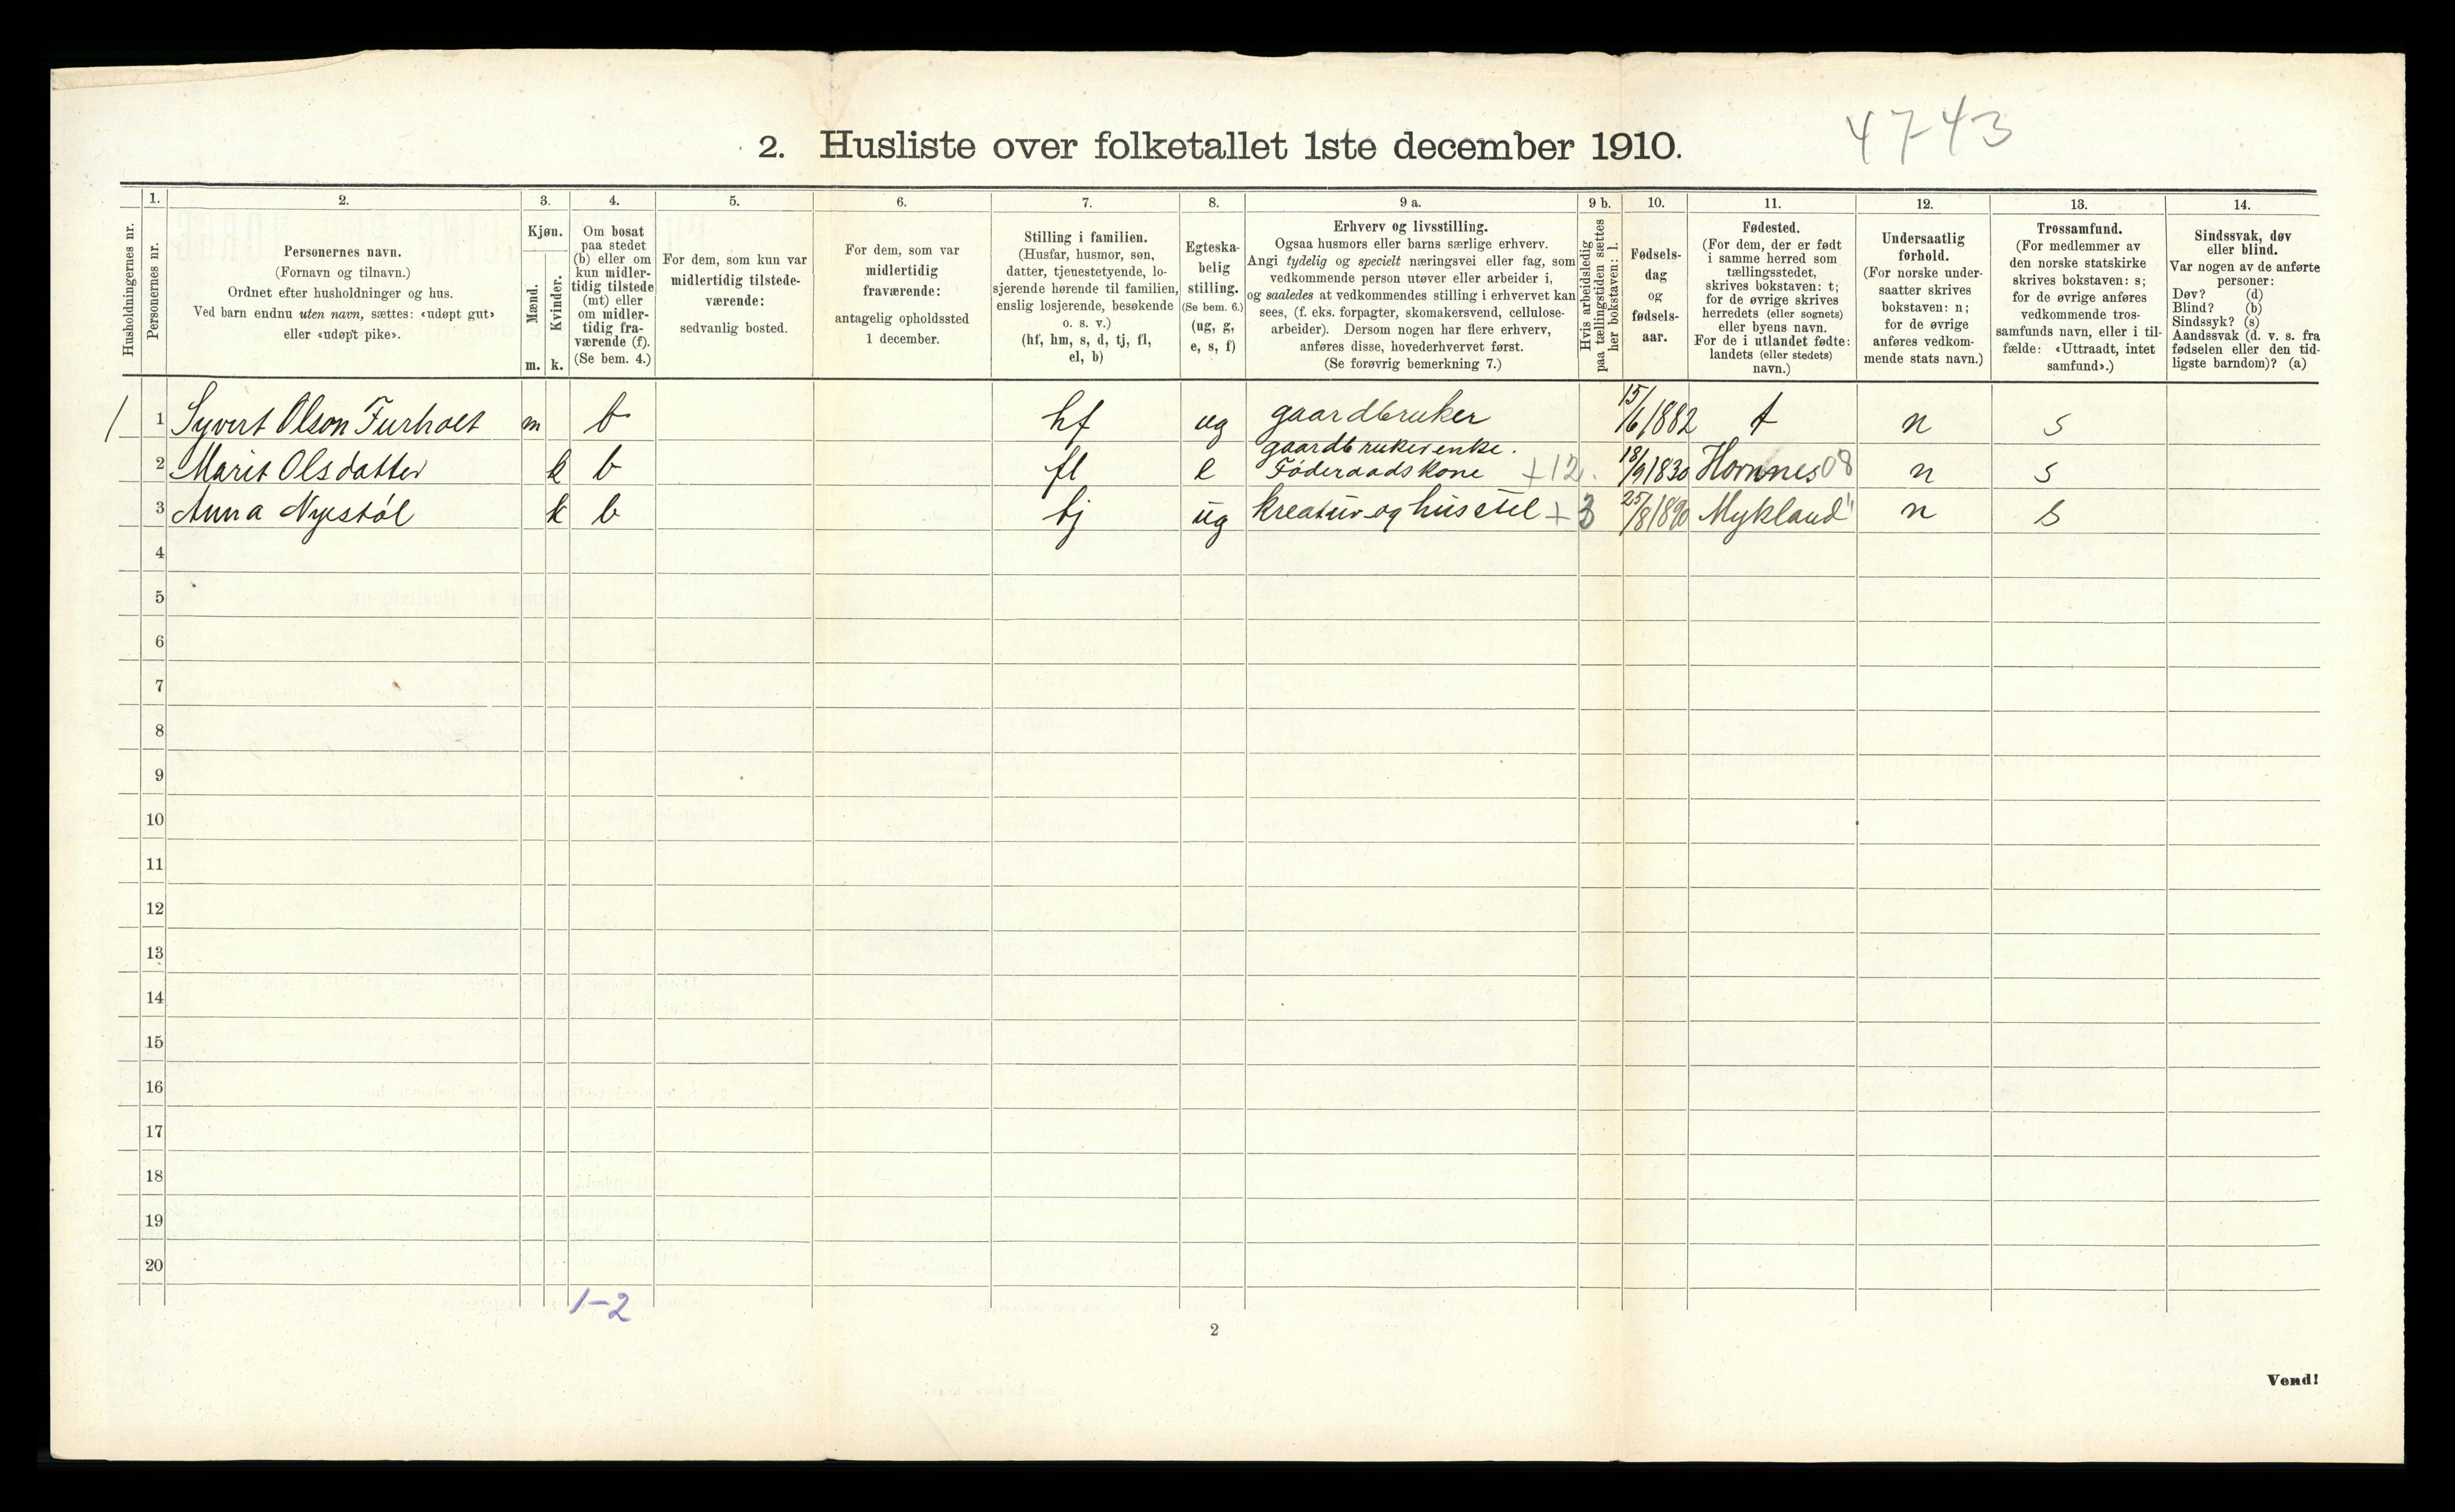 4743
2. Husliste over folketallet 1ste december 1910.
Husholdningernes nr.
1. Personernes nr.
2. Personernes navn.
(Fornavn og tilnavn.)
Ordnet efter husholdninger og hus.
Ved barn endnu uten navn, sættes: «udøpt gut»
eller «udøpt pike».
3. Kjøn.
Mænd. m.
Kvinder. k.
4. Om bosat
paa stedet
(b) eller om
kun midler-
tidig tilstede
(mt) eller
om midler-
tidig fra-
værende (f).
(Se bem. 4.)
5. For dem, som kun var
midlertidig tilstede-
værende:
sedvanlig bosted.
6. For dem, som var
midlertidig
fraværende:
antagelig opholdssted
1 december.
7. Stilling i familien.
(Husfar, husmor, søn,
datter, tjenestetyende, lo-
sjerende hørende til familien,
enslig losjerende, besøkende
o. s. v.)
(hf, hm, s, d, tj, fl,
el, b)
8. Egteska-
belig
stilling.
(Se bem. 6.)
(ug, g,
e, s, f)
9 a. Erhverv og livsstilling.
Ogsaa husmors eller barns særlige erhverv.
Angi tydelig og specielt næringsvei eller fag, som
vedkommende person utøver eller arbeider i,
og saaledes at vedkommendes stilling i erhvervet kan
sees, (f. eks. forpagter, skomakersvend, cellulose-
arbeider). Dersom nogen har flere erhverv,
anføres disse, hovederhvervet først.
(Se forøvrig bemerkning 7.)
9 b. Hvis arbeidsledig
paa tællingstiden sættes
her bokstaven: l.
10. Fødsels-
dag
og
fødsels-
aar.
11. Fødested.
(For dem, der er født
i samme herred som
tællingsstedet,
skrives bokstaven: t;
for de øvrige skrives
herredets (eller sognets)
eller byens navn.
For de i utlandet fødte:
landets (eller stedets)
navn.)
12. Undersaatlig
forhold.
(For norske under-
saatter skrives
bokstaven: n;
for de øvrige
anføres vedkom-
mende stats navn.)
13. Trossamfund.
(For medlemmer av
den norske statskirke
skrives bokstaven: s;
for de øvrige anføres
vedkommende tros-
samfunds navn, eller i til-
fælde: «Uttraadt, intet
samfund».)
14. Sindssvak, døv
eller blind.
Var nogen av de anførte
personer:
Døv? (d)
Blind? (b)
Sindssyk? (s)
Aandssvak (d. v. s. fra
fødselen eller den tid-
ligste barndom)? (a)
1 1 Syvert Olson Furholt m b hf ug gaardbruker 15/6 1882 t n s
gaardbrukerenke.
2 Marit Olsdatter k b fl e Føderaadskone +12. 18/9 1830 Hornnes 08 n s
3 Anna Nystøl k b tj ug kreatur og husstel +3 25/8 1890 Mykland " n s
4
5
6
7
8
9
10
11
12
13
14
15
16
17
18
19
20
1-2
2
Vend!